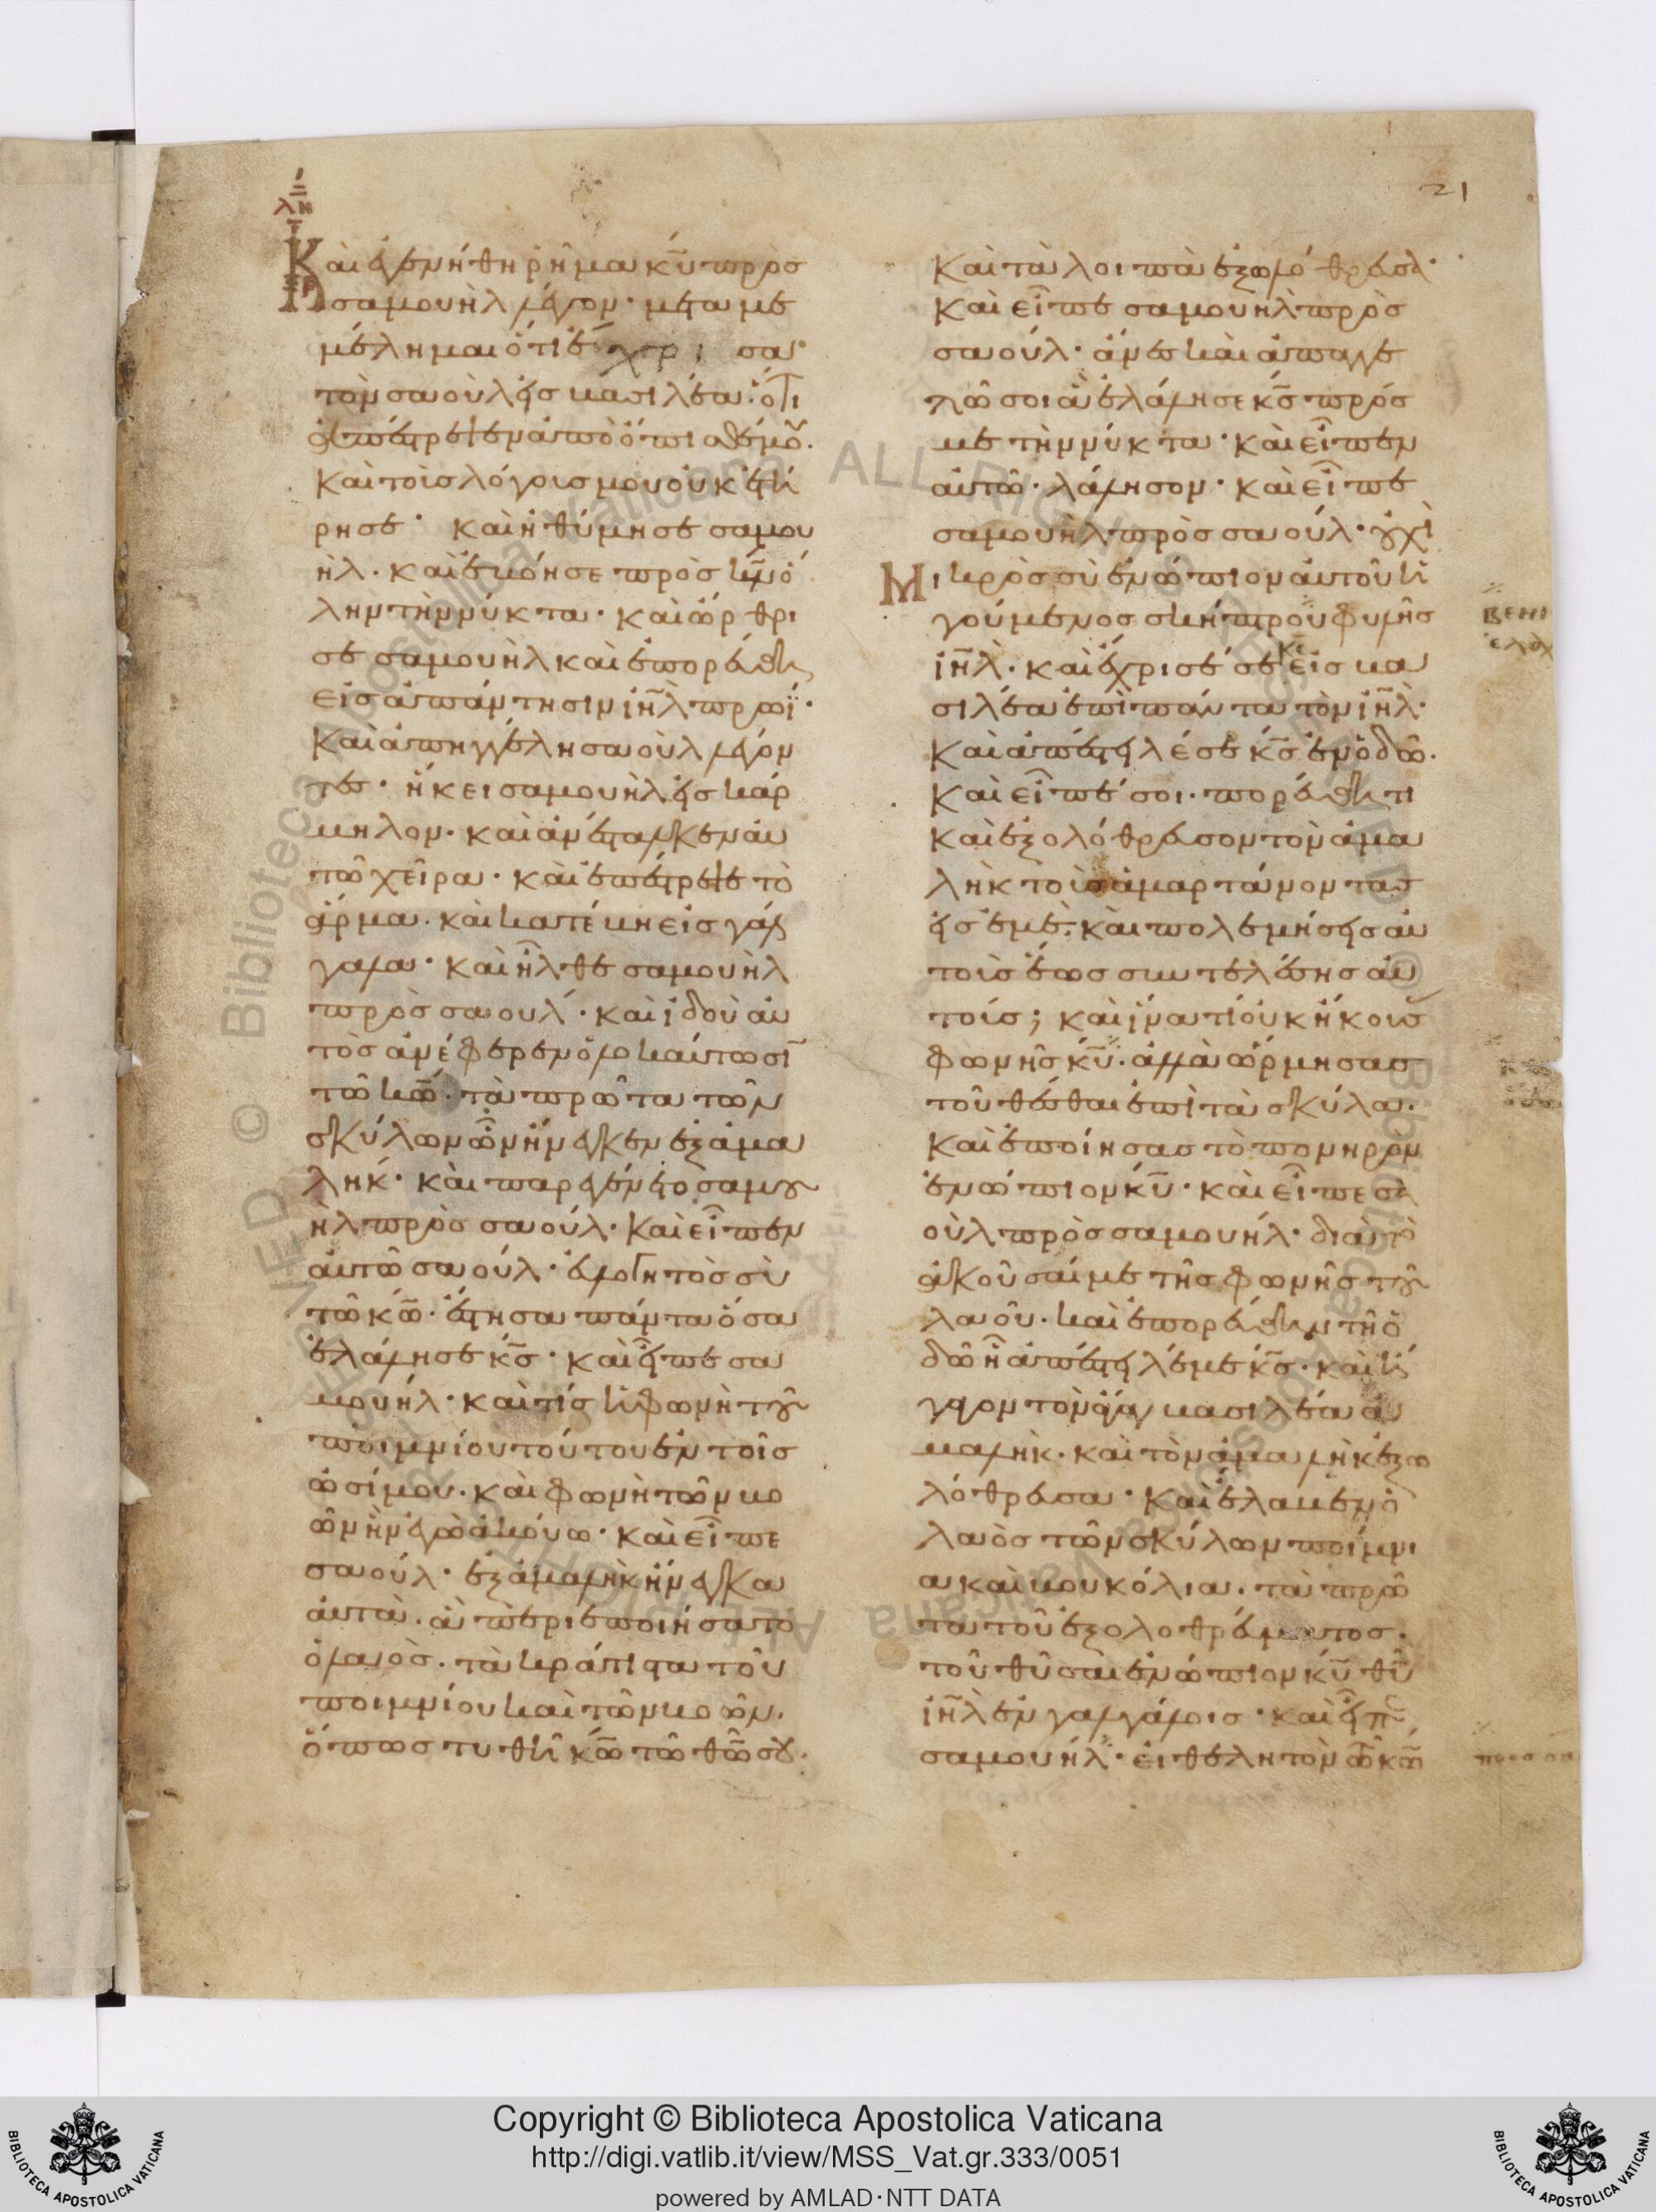 21
λη
Καὶ ἐγενήθη ῥῆμα κ̅υ̅ πρὸσ
σαμουὴλ λέγον· μεταμε
μέλημαι ὅτι ἔχρισα
τὸν σαοὺλ εἰσ βασιλέα· ὅτι
ἀπέστρεψεν ἀπὸ ὄπισθέν μου.
καὶ τοὺσ λόγουσ μου οὐκ ἐτή
ρησε· καὶ ἠθύμησε σαμου
ὴλ. καὶ ἐβόησε πρὸσ κ̅ν̅ ὅ
λην τὴν νύκτα· καὶ ὤρθρι
σε σαμουὴλ καὶ ἐπορεύθη
εἰσ ἀπάντησιν ι̅η̅λ̅ πρωΐ·
Καὶ ἀπηγγέλη σαοὺλ λέγον
τεσ· ἥκει σαμουὴλ εἰσ κάρ
μηλον· καὶ ἀνέστακεν αὐ
τῶ χεῖρα· καὶ ἐπέστρεψε τὸ
ἅρμα. καὶ κατέβη εἰσ γάλ
γαλα· καὶ ἦλθε σαμουὴλ
πρὸσ σαούλ· καὶ ἰδοὺ αὐ
τὸσ ἀνέφερεν ὁλοκαύτωσῑ
τῶ κ̅ω̅. τὰ πρῶτα τῶν
σκύλων ὧν ἤνεγκεν ἐξ ἀμα
λήκ· καὶ παρεγένετο σαμου
ὴλ πρὸσ σαούλ· Καὶ εἶπεν
αὐτῶ σαούλ· εὐλογητὸσ σὺ
τῶ κ̅ω̅· ἔστησα πάντα ὅσα
ἐλάλησε κ̅σ̅· καὶ εἶπε σα
μουήλ· καὶ τίσ ἡ φωνὴ τοῦ
ποιμνίου τούτου ἐν τοῖσ
ὠσί μου. καὶ φωνὴ τῶν βο
ῶν ἣν ἐγὼ ἀκούω· καὶ εἶπε
σαούλ· ἐξ ἀμαλὴκ ἤνεγκα
αὐτὰ. ἃ περιεποιήσατο
ὁ λαὸσ. τὰ κράτιστα τοῦ
ποιμνίου καὶ τῶν βοῶν.
ὅπωσ τυθῆ κ̅ω̅ τῶ θ̅ω̅ σου.
Καὶ τὰ λοιπὰ ἐξωλόθρευσα·
Καὶ εἶπε σαμουὴλ πρὸσ
σαούλ· ἄνεσ καὶ ἀπαγγε
λῶ σοι ἃ ἐλάλησε κ̅σ̅ πρόσ
με τὴν νύκτα· καὶ εἶπεν
αὐτῶ· λάλησον· καὶ εἶπε
σαμουὴλ πρὸσ σαούλ· οὐχὶ
Μικρὸσ σὺ ἐνώπιον αὐτοῦ ἡ
γούμενοσ σκήπτρου φυλῆσ
ι̅η̅λ̅. καὶ ἔχρισέ σε κ̅σ̅ εἰσ βα
σιλέα ἐπὶ πάντα τὸν ι̅η̅λ̅·
Καὶ ἀπέστειλέ σε κ̅σ̅ ἐν ὁδῶ.
Καὶ εἶπέ σοι· πορεύθητι
καὶ ἐξολόθρευσον τὸν ἀμα
λὴκ τοὺσ ἁμαρτάνοντασ
εἰσ ἐμέ. καὶ πολεμήσεισ αὐ
τοὺσ ἕωσ συντελέσησ αὐ
τούσ; καὶ ἵνα τί οὐκ ἤκουσασ
φωνῆσ κ̅υ̅. ἀλλὰ ὥρμησασ
τοῦ θέσθαι ἐπὶ τὰ σκύλα.
Καὶ ἐποίησασ τὸ πονηρὸν
ἐνώπιον κ̅υ̅· καὶ εἶπε σα
οὺλ πρὸσ σαμουήλ· διὰ τὸ
ἀκοῦσαί με τῆσ φωνῆσ τοῦ
λαοῦ. καὶ ἐπορεύθην τῆ ὁ
δῶ ἧ ἀπέστειλέ με κ̅σ̅. καὶ ἤ
γαγον τὸν ἀγὰγ βασιλέα ἀ
μαλὴκ. καὶ τὸν ἀμαλὴκ ἐξω
λόθρευσα· Καὶ ἔλαβεν ὁ
λαὸσ τῶν σκύλων ποίμνι
α καὶ βουκόλια. τὰ πρῶ
τα τοῦ ἐξολοθρεύματοσ.
τοῦ θῦσαι ἐνώπιον κ̅υ̅ θ̅υ̅
ι̅η̅λ̅ ἐν γαλγάλοισ· καὶ εἶπε
σαμουήλ· εἰ θελητὸν τῶ κ̅ω̅
Copyright © Biblioteca Apostolica Vaticana
http://digi.vatlib.it/view/MSS_Vat.gr.333/0051
powered by AMLAD·NTT DATA